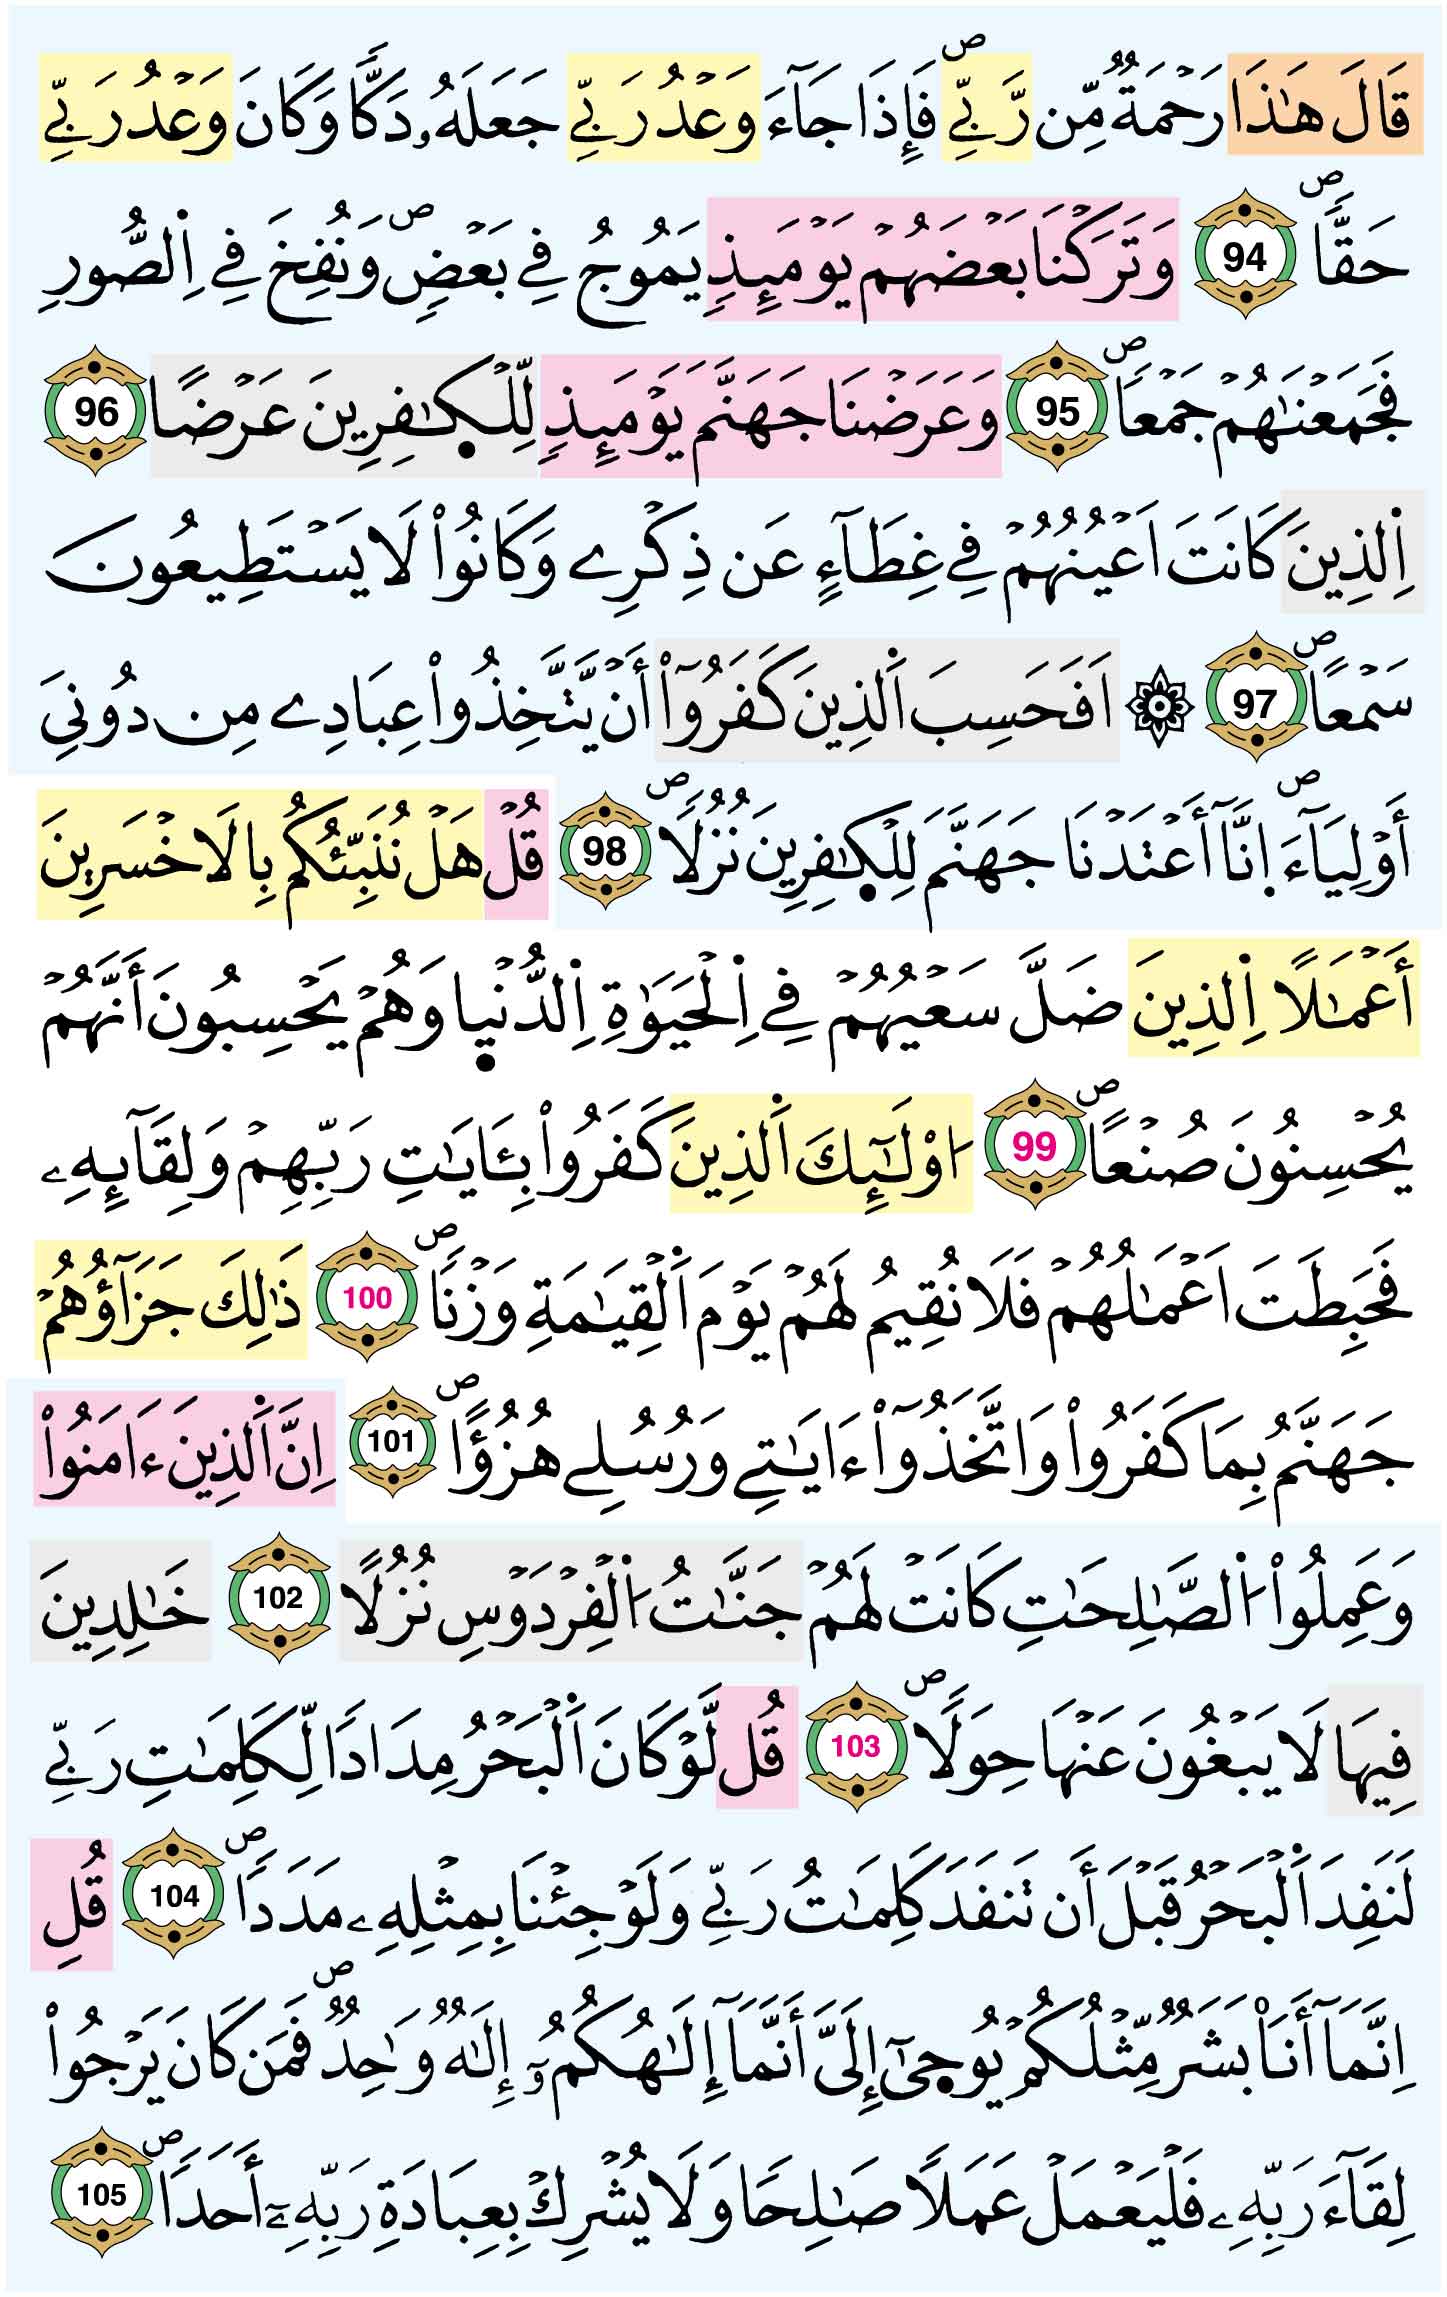 قَالَ هَٰذَا رَحْمَةٌ مِّن رَّبِّے ۖ فَإِذَا جَآءَ وَعْدُ رَبِّے جَعَلَهُۥ دَكّٗا وَكَانَ وَعْدُ رَبِّے
حَقّٗا ص 94 وَتَرَكْنَا بَعْضَهُمْ يَوْمَئِذٖ يَمُوجُ فِے بَعْضٖ ص وَنُفِخَ فِے اِ۬لصُّورِ
فَجَمَعْنَٰهُمْ جَمْعٗا ص 95 وَعَرَضْنَا جَهَنَّمَ يَوْمَئِذٖ لِّلْكٰ۪فِرِينَ عَرْضًا 96
اِ۬لذِينَ كَانَتَ اَعْيُنُهُمْ فِے غِطَآءٍ عَن ذِكْرِے وَكَانُواْ لَا يَسْتَطِيعُونَ
سَمْعًا ص 97 ۞ اَفَحَسِبَ اَ۬لذِينَ كَفَرُوٓاْ أَنْ يَّتَّخِذُواْ عِبَادِے مِن دُونِيَ
أَوْلِيَآءَ ص ا۪نَّآ أَعْتَدْنَا جَهَنَّمَ لِلْكٰ۪فِرِينَ نُزُلٗا ص 98 قُلْ هَلْ نُنَبِّئُكُم بِالَاخْسَرِينَ
أَعْمَٰلًا اِ۬لذِينَ ضَلَّ سَعْيُهُمْ فِے اِ۬لْحَيَوٰةِ اِ۬لدُّنْي۪ا وَهُمْ يَحْسِبُونَ أَنَّهُمْ
يُحْسِنُونَ صُنْعًا ص 99 ا۟وْلَٰٓئِكَ اَ۬لذِينَ كَفَرُواْ بِـَٔايَٰتِ رَبِّهِمْ وَلِقَآئِهِۦ
فَحَبِطَتَ اَعْمَٰلُهُمْ فَلَا نُقِيمُ لَهُمْ يَوْمَ اَ۬لْقِيَٰمَةِ وَزْنٗا ص 100 ذَٰلِكَ جَزَآؤُهُمْ
جَهَنَّمُ بِمَا كَفَرُواْ وَاتَّخَذُوٓاْ ءَايَٰتِے وَرُسُلِے هُزُؤًا ص 101 اِنَّ اَ۬لذِينَ ءَامَنُواْ
وَعَمِلُواْ اُ۬لصَّٰلِحَٰتِ كَانَتْ لَهُمْ جَنَّٰتُ اُ۬لْفِرْدَوْسِ نُزُلًا 102 خَٰلِدِينَ
فِيهَا لَا يَبْغُونَ عَنْهَا حِوَلٗا ص 103 قُل لَّوْ كَانَ اَ۬لْبَحْرُ مِدَادٗا لِّكَلِمَٰتِ رَبِّے
لَنَفِدَ اَ۬لْبَحْرُ قَبْلَ أَن تَنفَدَ كَلِمَٰتُ رَبِّے وَلَوْ جِئْنَا بِمِثْلِهِۦ مَدَدٗا ص 104 قُلِ
اِنَّمَآ أَنَا۠ بَشَرٞ مِّثْلُكُمْ يُوح۪يٰٓ إِلَيَّ أَنَّمَآ إِلَٰهُكُمُۥٓ إِلَٰهٞ وَٰحِدٞ ص فَمَن كَانَ يَرْجُواْ
لِقَآءَ رَبِّهِۦ فَلْيَعْمَلْ عَمَلٗا صَٰلِحٗا وَلَا يُشْرِكْ بِعِبَادَةِ رَبِّهِۦٓ أَحَدٗا ص 105